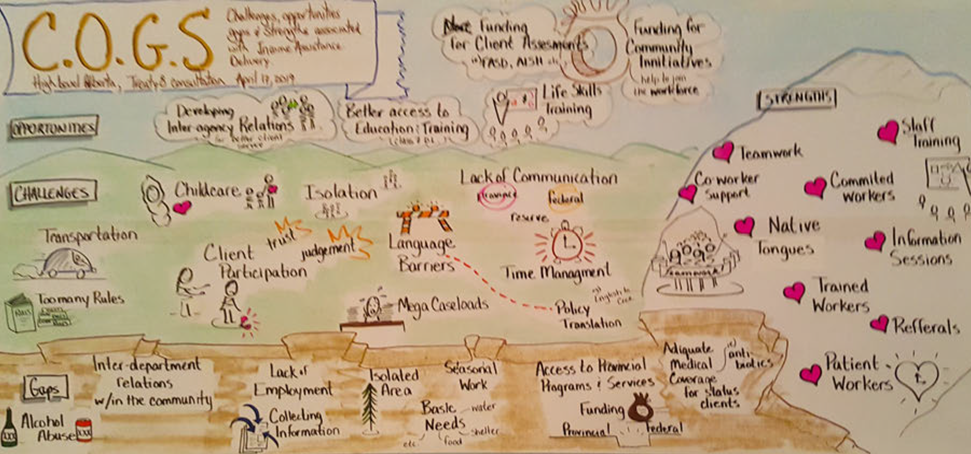 C.O.G.S
Challenges, opportunities
gaps & strengths associated
with Income Assistance
Delivery.
High Level Alberta, Treaty 8 consultation April 17, 2019
OPPORTUNITIES
Developing
Inter-agency Relations
for better client
Better access to
Education & Training
More Funding
for Client Assesments
"FASD, AISH..."
Life Skills
Training
Funding for
Community
Innitiatives
help to join
the workforce
CHALLENGES
Childcare
Isolation
Lack of Communication
province
Federal
reserve
Transportation
Client
Participation
trust
judgement
Language
Barriers
Time Managment
Too many Rules
RULES
Mega Caseloads
Policy
Translation
English to
Cree
STRENGTHS
Teamwork
Staff
Training
Co-worker
Support
Commited
Workers
Native
Tongues
Information
Sessions
Teamwork
Trained
Workers
Refferals
Patient
Workers
Gaps
Inter-department
relations
w/in the community
Lack of
Employment
Isolated
Area
Seasonal
Work
Access to Provincial
Programs & Services
Adiquate
Medical
Coverage
for status
clients
anti-
biotics
Alcohol
Abuse
XXX
XXX
Collecting
Information
Basic
Needs
water
shelter
food
etc
Funding
Provincial
Federal